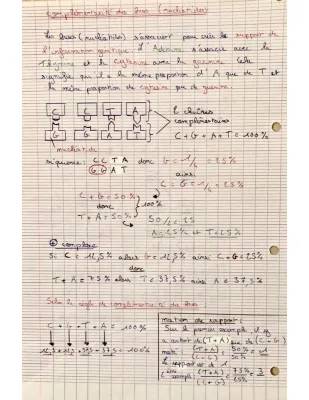 Complémentarité des bases (nucléotides)
Les bases (nucléotides) s'associent pour créer le support de
l'information génétique. L'Adénine s'associe avec la
Thymine et la Cytosine avec la guanine. Cela
signifie qu'il y a la même proportion d'A que de T et
la même proportion de cytosine que de guanine.
C C T A
G G A T
2 chaînes
complémentaires
C + G + A + T = 100%
nucléotide
séquence: C C T A donc G = 1/4 = 25%
G G A T ainsi
C = G = 1/4 = 25%
C + G = 50%
donc 100%
T + A = 50% 50/2 = 25
A = 25% et T = 25%
② exemple
Si C = 12,5% alors G = 12,5% ainsi C + G = 25%
donc
T + A = 75% alors T = 37,5% ainsi A = 37,5%
Selon la règle de complémentarité des bases
C + G + T + A = 100%
12,5 + 12,5 + 37,5 + 37,5 = 100%
notion de rapport:
Sur le premier exemple il y
a autant de (T+A) que de (C+G)
(T+A) / (C+G) = 50% / 50% = 1
le rapport est de 1
exemple (T+A) / (C+G) = 75% / 25% = 3